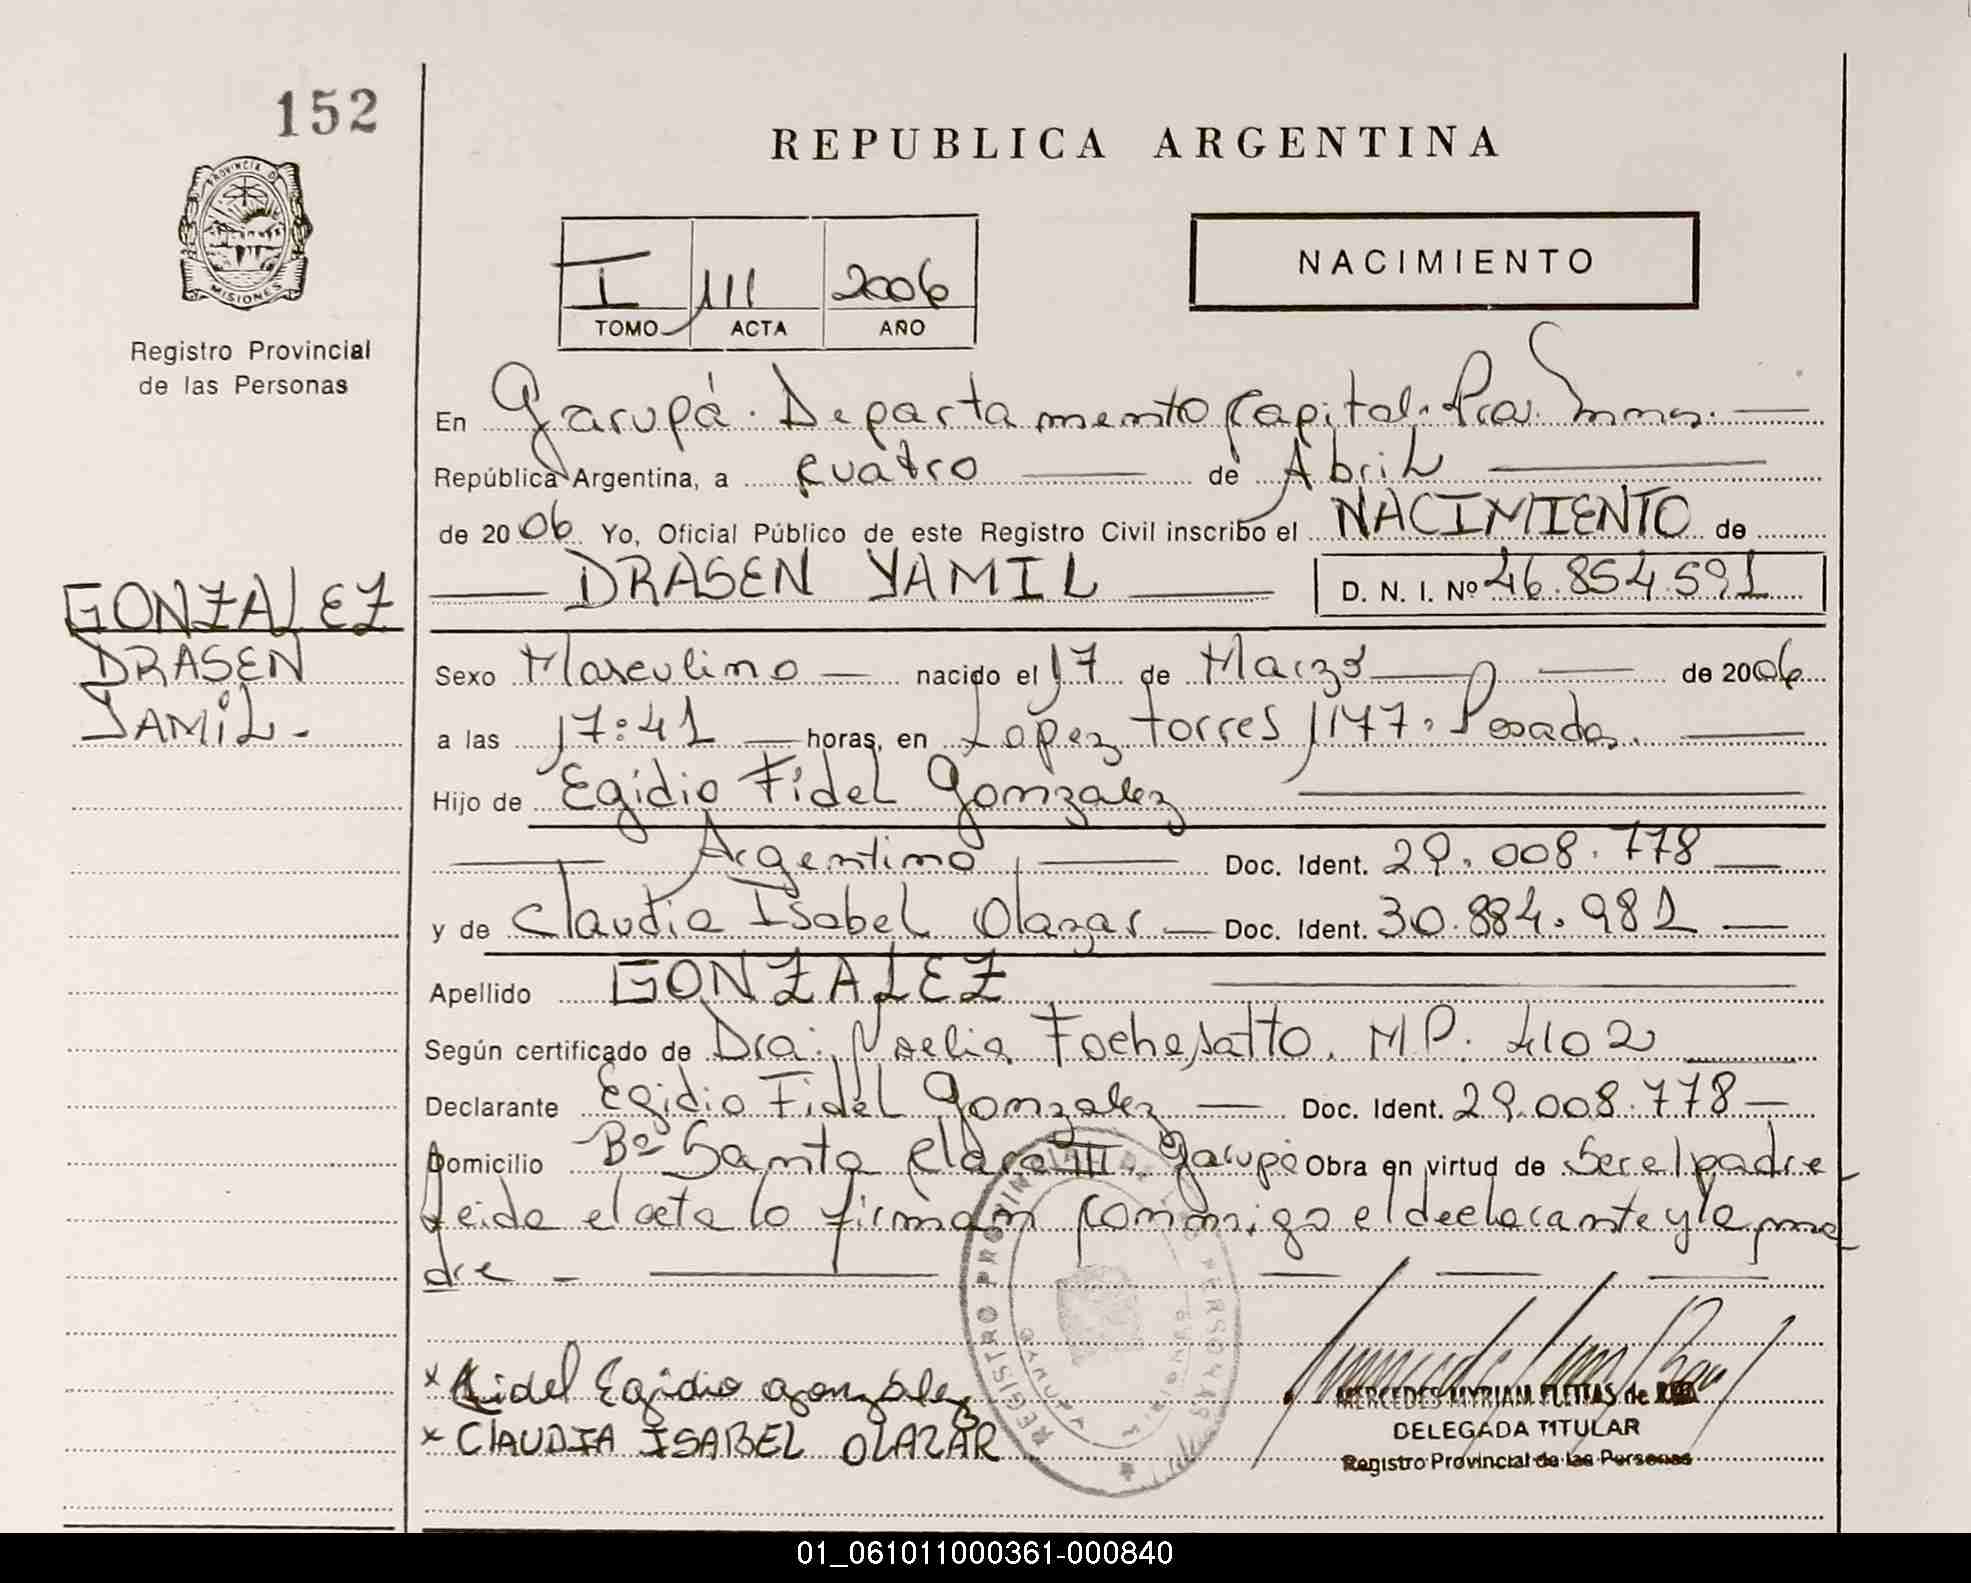 152
REPUBLICA ARGENTINA
PROVINCIA D
MISIONES
Registro Provincial
de las Personas
I 111 2006
TOMO ACTA AÑO
NACIMIENTO
En Garupá. Departamento Capital. Pcia. Mnes.
República Argentina, a cuatro de Abril
de 2006 Yo, Oficial Público de este Registro Civil inscribo el NACIMIENTO de
DRASEN YAMIL D. N. I. Nº 46.854.591
GONZALEZ
DRASEN
YAMiL.-
Sexo Masculino nacido el 17 de Marzo de 2006
a las 17:41 horas, en Lopez Torres 1177. Posadas.
Hijo de Egidio Fidel Gonzalez
Argentino Doc. Ident. 29.008.778
y de Claudia Isabel Olazar Doc. Ident. 30.884.981
Apellido GONZALEZ
Según certificado de Dra: Noelia Fochesatto. MP. 4102
Declarante Egidio Fidel Gonzalez Doc. Ident. 29.008.778
Domicilio Bº Santa Clara III Garupá Obra en virtud de Ser el padre
Leida el acta lo firman conmigo el declarante y la ma
dre -
REGISTRO PROVINCIAL DE LAS PERSONAS
x Fidel Egidio gonzalez
x CLAUDIA ISABEL OLAZAR
MERCEDES MYRIAM FLEITAS de
DELEGADA TITULAR
Registro Provincial de las Personas
01_061011000361-000840